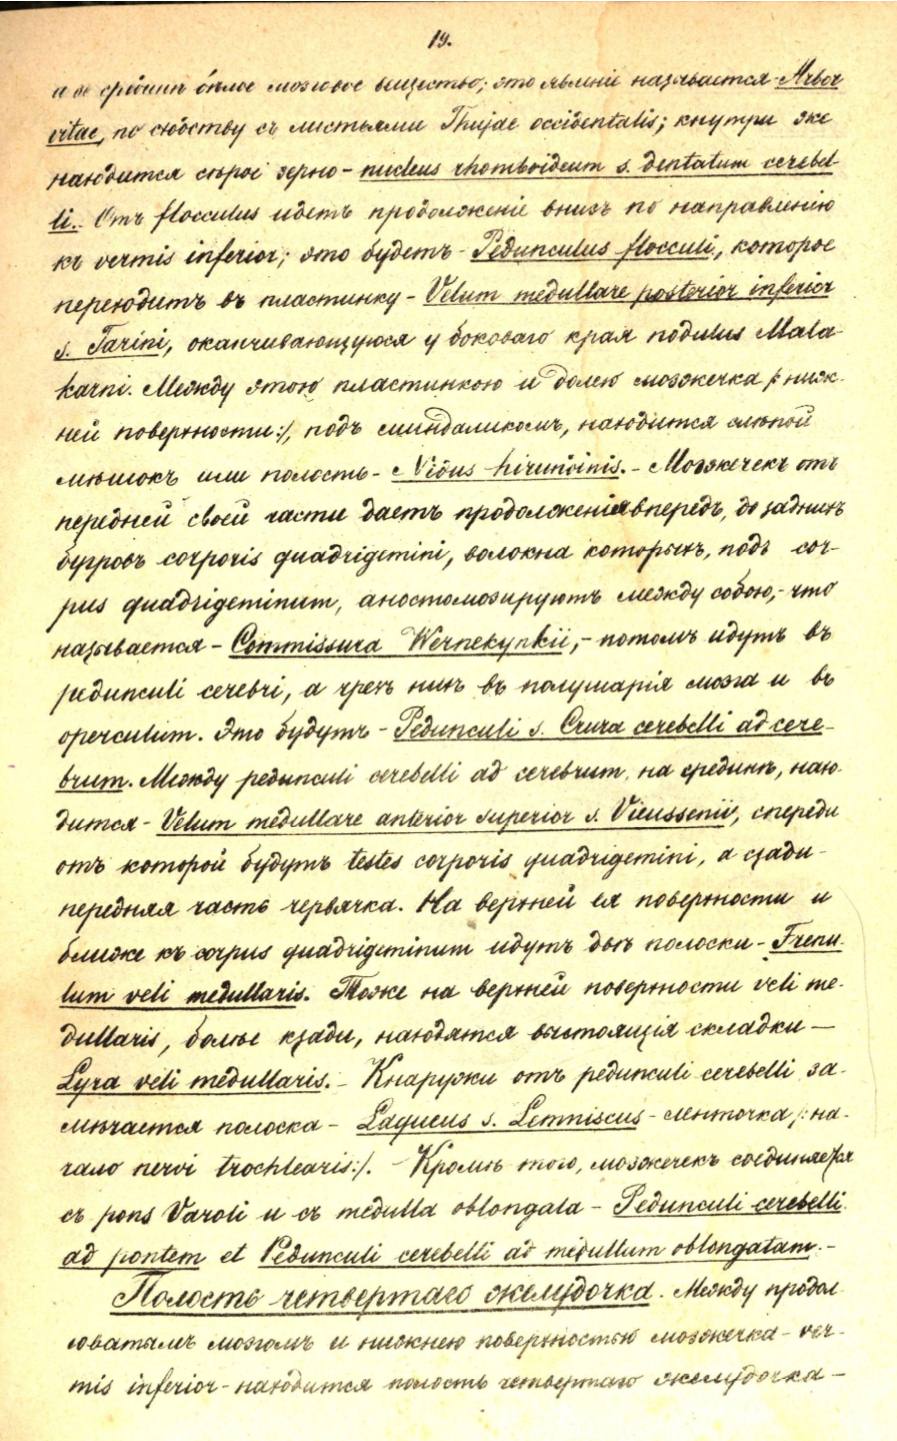 19.
а въ срединѣ бѣлое мозговое вещество; это явленіе называется - Arbor
vitae, по сходству съ листьями Thujae occidentalis; кнутри же
находится сѣрое зерно - nucleus rhomboideum s. dentatum cerebel-
li. Отъ flocculus идетъ продолженіе внизъ по направленію
къ vermis inferior; это будетъ - Pedunculus flocculi, которое
переходитъ въ пластинку - Velum medullare posterior inferior
s. Tarini, оканчивающуюся у боковаго края nodulus Mala-
karni. Между этою пластинкою и долею мозжечка /: ниж-
ней поверхности:/, подъ миндаликомъ, находится слѣпой
мѣшокъ или полость - Nidus hirundinis. - Мозжечекъ отъ
передней своей части даетъ продолженія впередъ, до заднихъ
бугровъ corporis quadrigemini, волокна которыхъ, подъ cor-
pus quadrigeminum, аностомозируютъ между собою, - что
называется - Commissura Wernekynkii, - потомъ идутъ въ
pedunculi cerebri, а чрезъ нихъ въ полушарія мозга и въ
operculum. Это будутъ - Pedunculi s. Crura cerebelli ad cere-
brum. Между pedunculi cerebelli ad cerebrum, на срединѣ, нахо-
дится - Velum medullare anterior superior s. Vieussenii, спереди
отъ которой будутъ testes corporis quadrigemini, а сзади -
передняя часть червячка. На верхней ея поверхности и
ближе къ corpus quadrigeminum идутъ двѣ полоски - Frenu-
lum veli medullaris. Тоже на верхней поверхности veli me-
dullaris, болѣе кзади, находятся выстоящія складки —
Lyra veli medullaris. - Кнаружи отъ pedunculi cerebelli за-
мѣчается полоска - Laqueus s. Lemniscus - ленточка /: на-
чало nervi trochlearis:/. - Кромѣ того, мозжечекъ соединяется
съ pons Varoli и съ medulla oblongata - Pedunculi cerebelli
ad pontem et Pedunculi cerebelli ad medullam oblongatam. -
Полость четвертаго желудочка. Между продол-
говатымъ мозгомъ и нижнею поверхностью мозжечка - ver-
mis inferior - находится полость четвертаго желудочка —